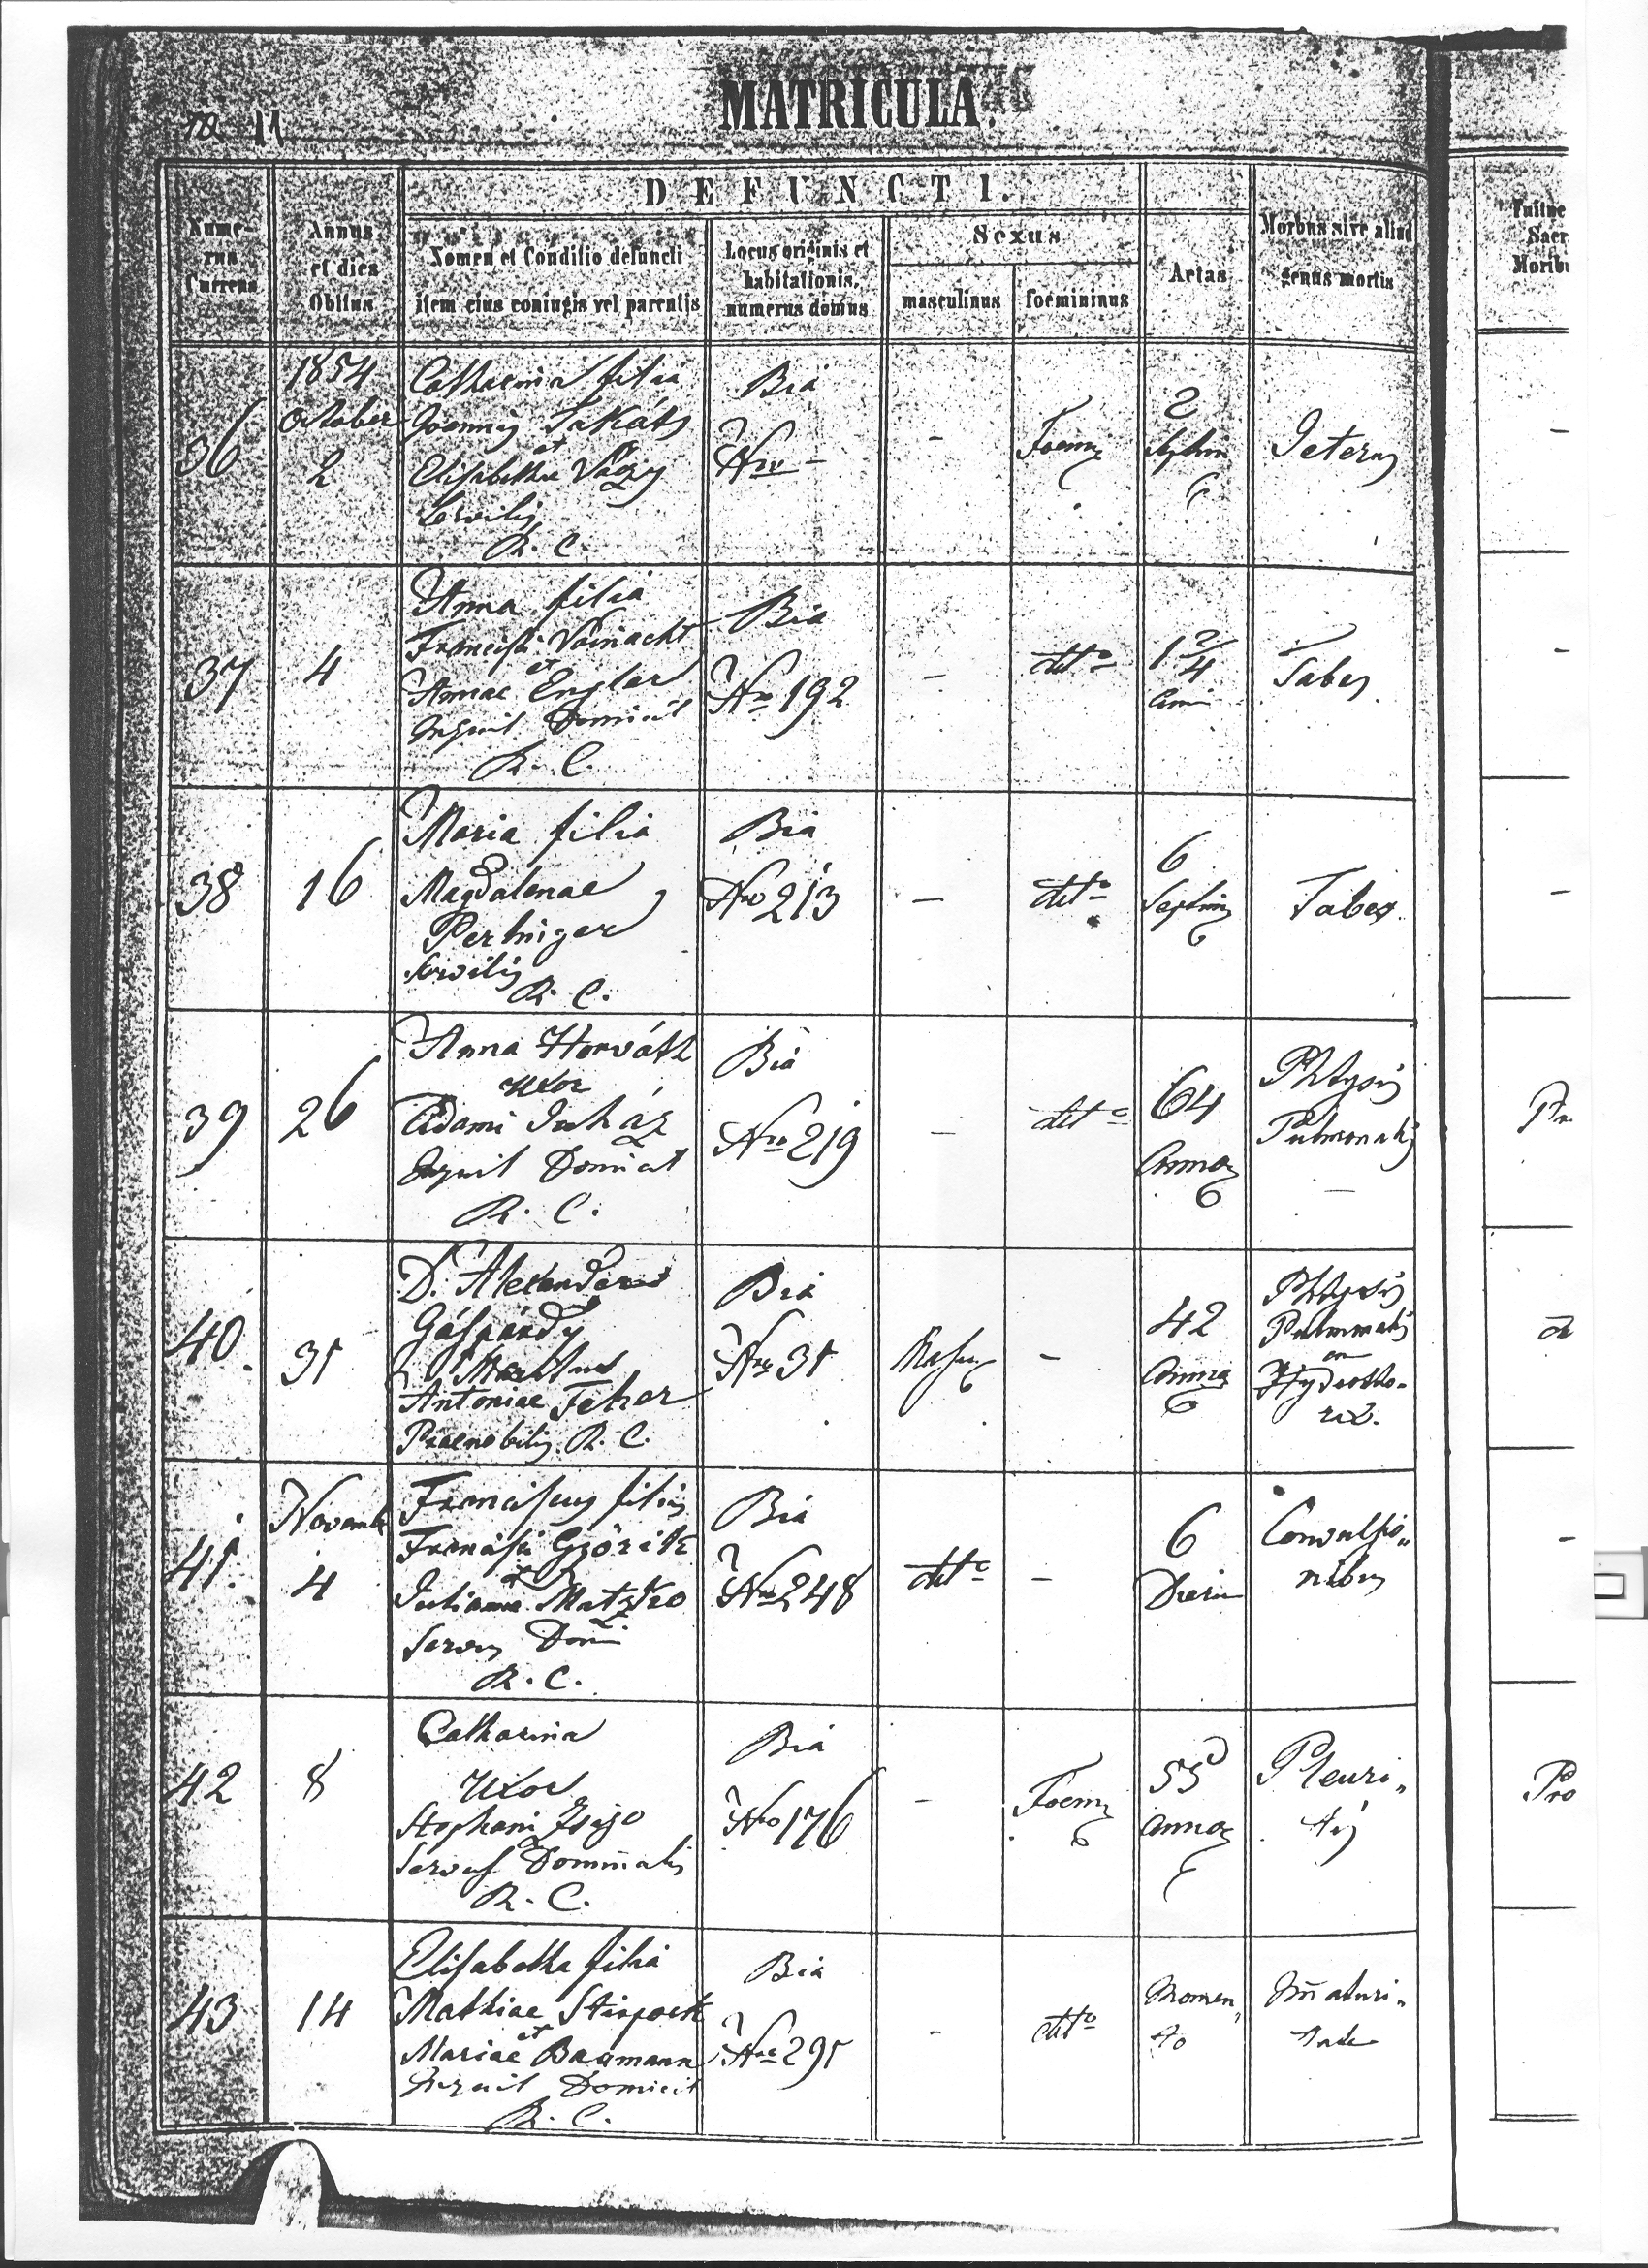 11
MATRICULA.
DEFUNCTI.
Nume-
rus
Currens
Annus
et dies
Obitus
Nomen et Conditio defuncti
item eius coniugis vel parentis
Locus originis et
habitationis,
numerus domus
Sexus
masculinus
foemininus
Aetas
Morbus sive aliud
genus mortis
Fuitne
Sacr
Morib
36
1854
October
2
Catharina filia
Joannis Takáts
et
Elisabethae Vágy
Servilis
R. C.
Bia
Nro –
-
Foemi
2
Septim
Icterus
37
4
Anna filia
Francisci Vainacht
et
Annae Engler
Inquil Domicil
R. C.
Bia
Nro 192
-
detto
1 2/4
Anni
Tabes
38
16
Maria filia
Magdalenae
Perhiger
Servilis
R. C.
Bia
Nro 213
-
detto
6
Septim
Tabes
39
26
Anna Horváth
Uxor
Adami Juház
Inquil Domicil
R. C.
Bia
Nro 219
-
detto
64
Annor
Phtysis
Pulmonalis
40.
31
D. Alexander
Gáspárdy
Maritus
Antoniae Feher
Praenobilis R. C.
Bia
Nro 31
Masc
-
42
Annor
Phtysis
Pulmonalis
Hydrotho-
rax.
41.
Novemb
4
Franciscus filius
Francisci Györik
et
Julianna Matzko
Servus Domi
R. C.
Bia
Nro 248
detto
-
6
Dierum
Convulsio-
nibus
42
8
Catharina
Uxor
Stephani Zsigo
Servus Dominalis
R. C.
Bia
Nro 176
-
Foemi
55
annor
Pleuri-
tis
Pro
43
14
Elisabetha filia
Mathiae Stirpock
et
Mariae Baumann
Inquil Domicil
R. C.
Bia
Nro 291
-
detto
Momen-
to
Immaturi-
tate